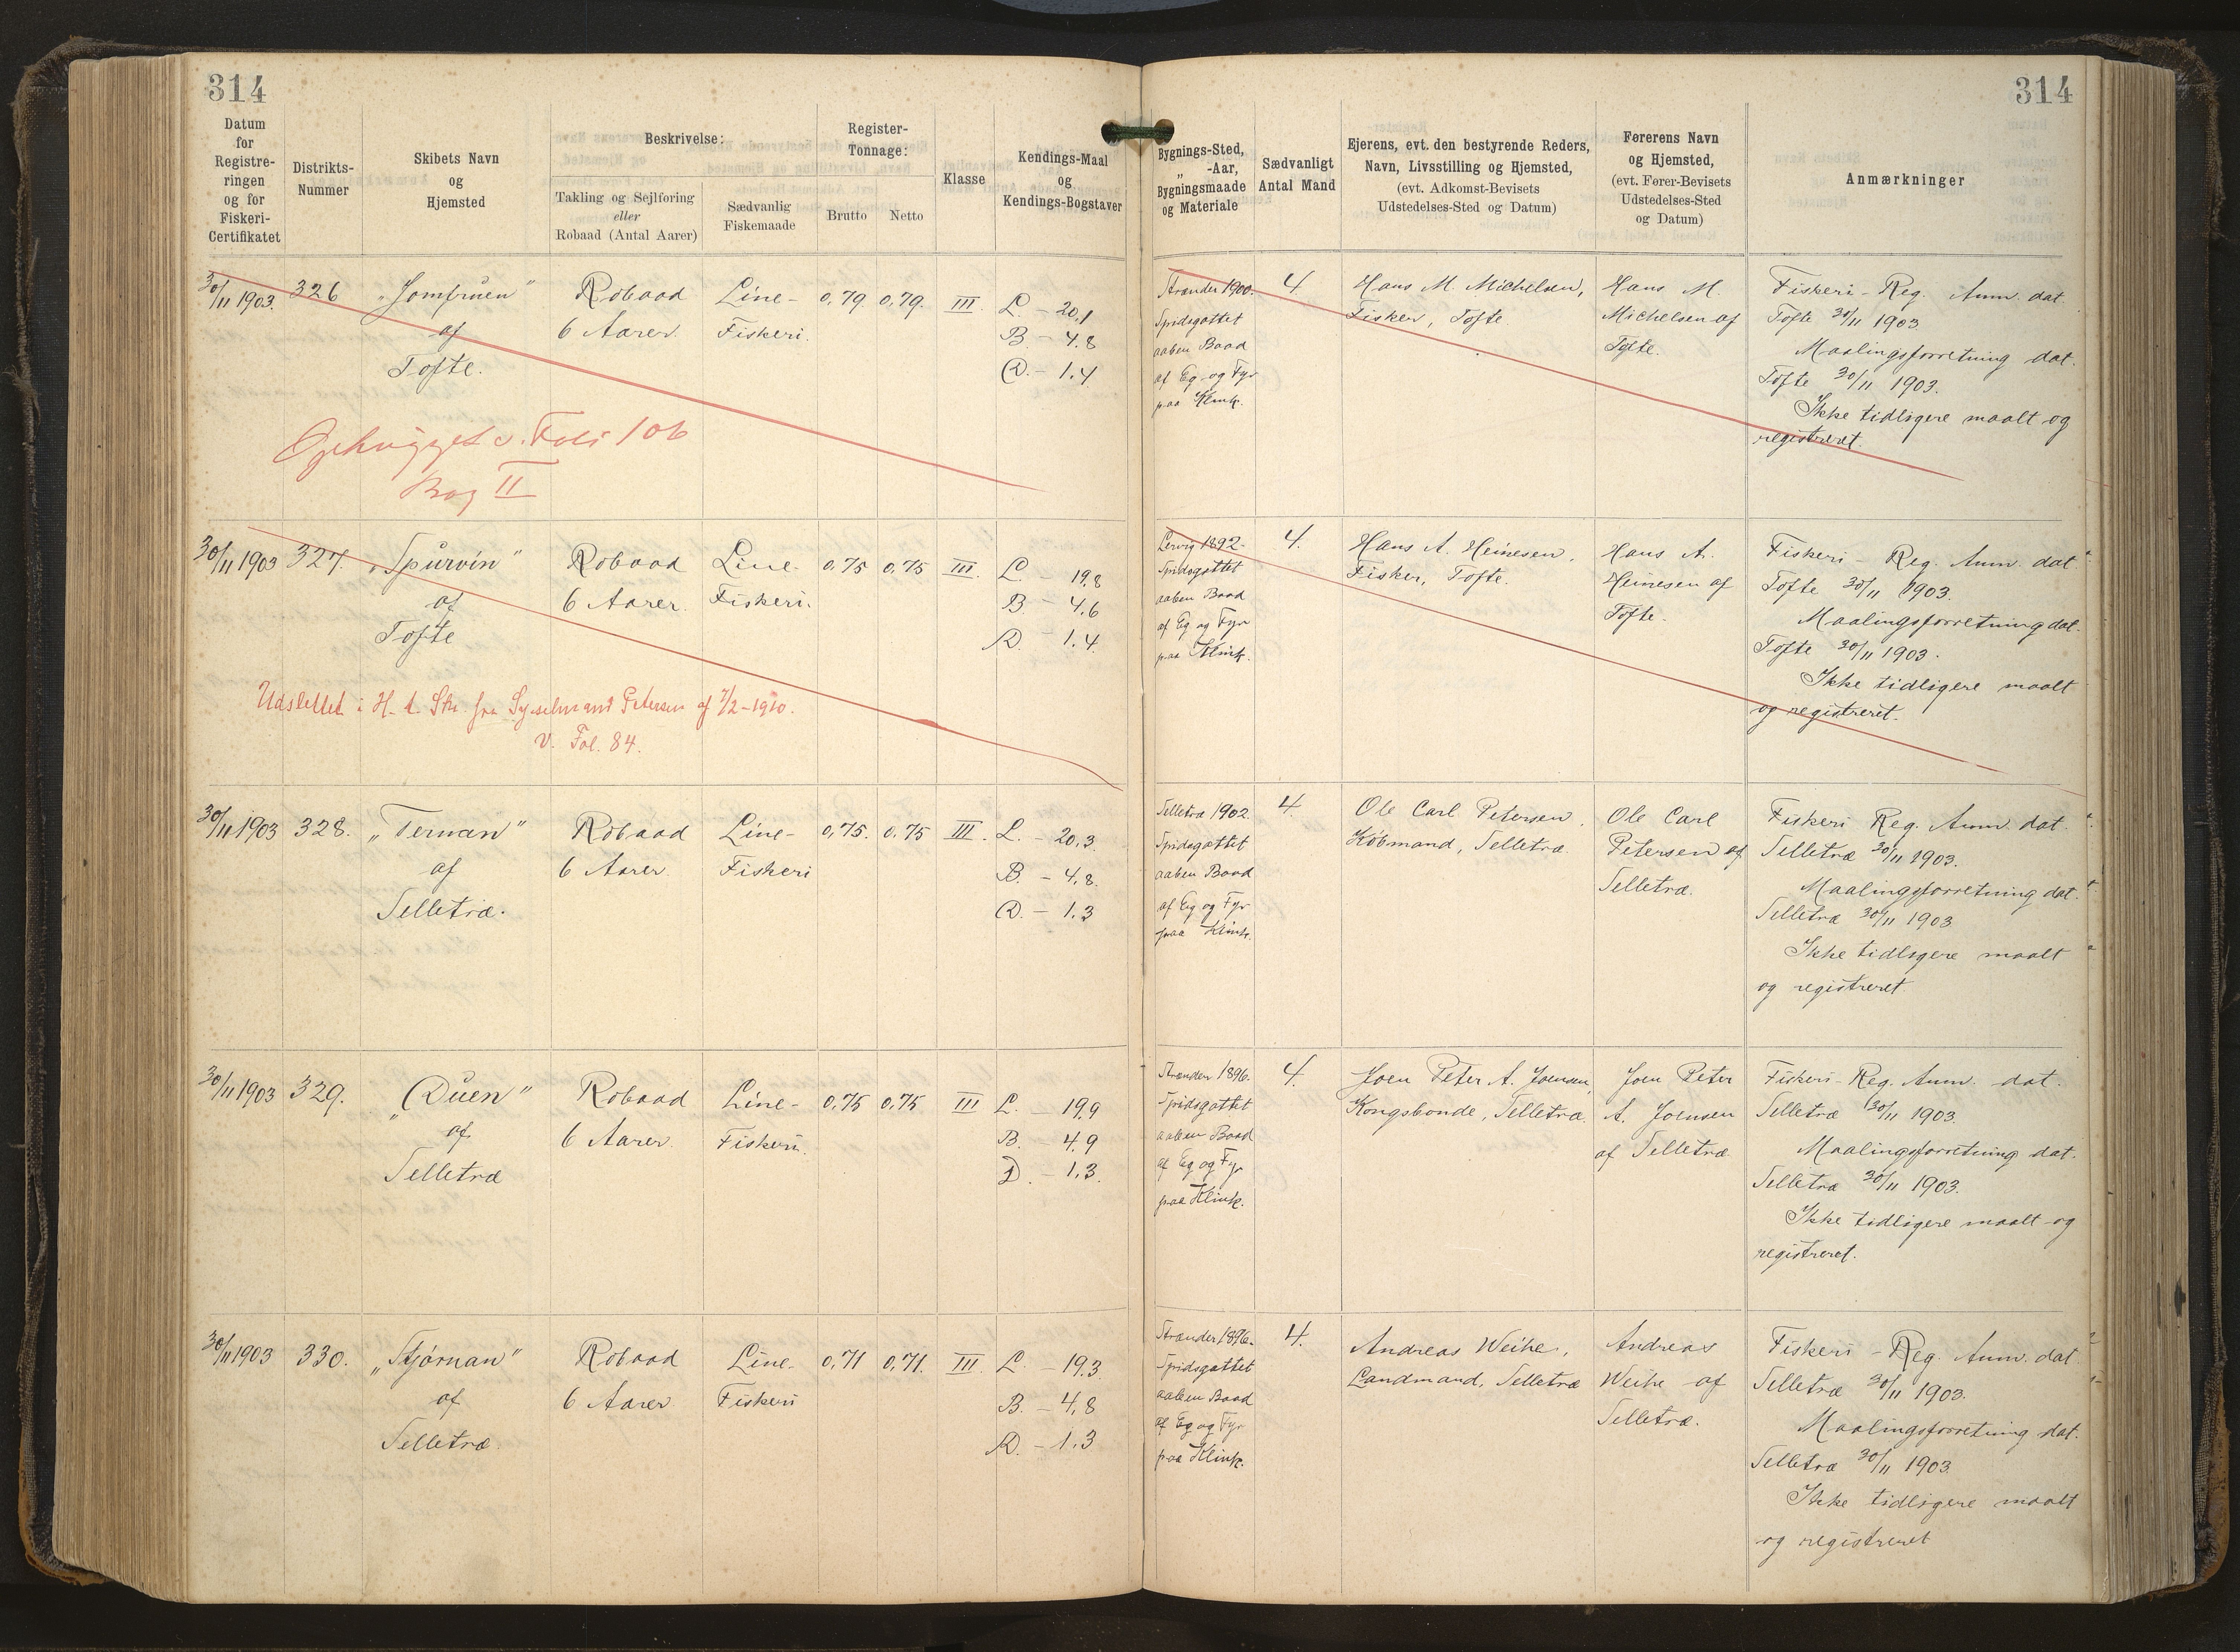 314
314
Datum
for
Registre-
ringen
og for
Fiskeri-
Certifikatet
Distrikts-
Nummer
Skibets Navn
og
Hjemsted
Beskrivelse:
Takling og Sejlføring
eller
Robaad (Antal Aarer)
Sædvanlig
Fiskemaade
Register-
Tonnage:
Brutto
Netto
Klasse
Kendings-Maal
og
Kendings-Bogstaver
Bygnings-Sted,
„ -Aar,
Bygningsmaade
og Materiale
Sædvanligt
Antal Mand
Ejerens, evt. den bestyrende Reders,
Navn, Livsstilling og Hjemsted,
(evt. Adkomst-Bevisets
Udstedelses-Sted og Datum)
Førerens Navn
og Hjemsted,
(evt. Fører-Bevisets
Udstedelses-Sted
og Datum)
Anmærkninger
30/11 1903.
326
„Jomfruen"
af
Tofte.
Robaad
6 Aarer.
Line-
Fiskeri.
0,79.
0,79.
III.
L. - 20,1
B. - 4.8
D. - 1.4
Strænder 1900.
Spidsgattet
aaben Baad
af Eg og Fyr
paa Klink.
4.
Hans M. Michelsen,
Fisker, Tofte
Hans M.
Michelsen af
Tofte.
Fiskeri-Reg. Anm. dat.
Tofte 30/11 1903
Maalingsforretning dat.
Tofte 30/11 1903.
Ikke tidligere maalt og
registreret.
Ophugget v. Folio 106
Bog II
30/11 1903
327.
„Spurvin"
af
Tofte
Robaad
6 Aarer.
Line-
Fiskeri.
0.75
0,75
III.
L. - 19.8
B. - 4.6
D. - 1.4.
Lervig 1892-
Spidsgattet
aaben Baad
af Eg og Fyr
paa Klink.
4.
Hans A. Heinesen,
Fisker, Tofte.
Hans A.
Heinesen af
Tofte.
Fiskeri-Reg. Anm. dat.
Tofte 30/11 1903.
Maalingsforretning dat.
Tofte 30/11 1903.
Ikke tidligere maalt
og registreret.
Udslettet i H. t. Skr. fra Sysselmand Petersen af 7/2-1910.
v. Fol. 84.
30/11 1903
328.
„Ternan"
af
Selletræ.
Robaad
6 Aarer
Line-
Fiskeri
0,75.
0,75
III.
L. - 20,3.
B. - 4,8.
D. - 1,3
Selletræ 1902.
Spidsgattet
aaben Baad
af Eg og Fyr
paa Klink.
4.
Ole Carl Petersen,
Købmand, Selletræ.
Ole Carl
Petersen af
Selletræ.
Fiskeri Reg. Anm. dat.
Selletræ 30/11 1903.
Maalingsforretning dat.
Selletræ 30/11 1903
Ikke tidligere maalt
og registreret
30/11 1903
329.
„Duen"
af
Selletræ
Robaad
6 Aarer.
Line-
Fiskeri.
0,75
0,75
III
L. - 19,9
B. - 4,9
D. - 1,3.
Strænder 1896.
Spidsgattet
aaben Baad
af Eg og Fyr
paa Klink.
4.
Joen Peter A. Joensen,
Kongsbonde, Selletræ.
Joen Peter
A. Joensen
af Selletræ
Fiskeri-Reg. Anm. dat.
Selletræ 30/11 1903.
Maalingsforretning dat.
Selletræ 30/11 1903.
Ikke tidligere maalt og
registreret.
30/11 1903
330.
„Stjørnan"
af
Selletræ.
Robaad
6 Aarer
Line-
Fiskeri
0,71
0,71.
III.
L. - 19.3.
B. - 4,8
D. - 1.3
Strænder 1896.
Spidsgattet
aaben Baad
af Eg og Fyr
paa Klink.
4.
Andreas Weihe,
Landmand, Selletræ
Andreas
Weihe af
Selletræ.
Fiskeri-Reg. Anm. dat.
Selletræ 30/11 1903.
Maalingsforretning dat.
Selletræ 30/11 1903.
Ikke tidligere maalt
og registreret